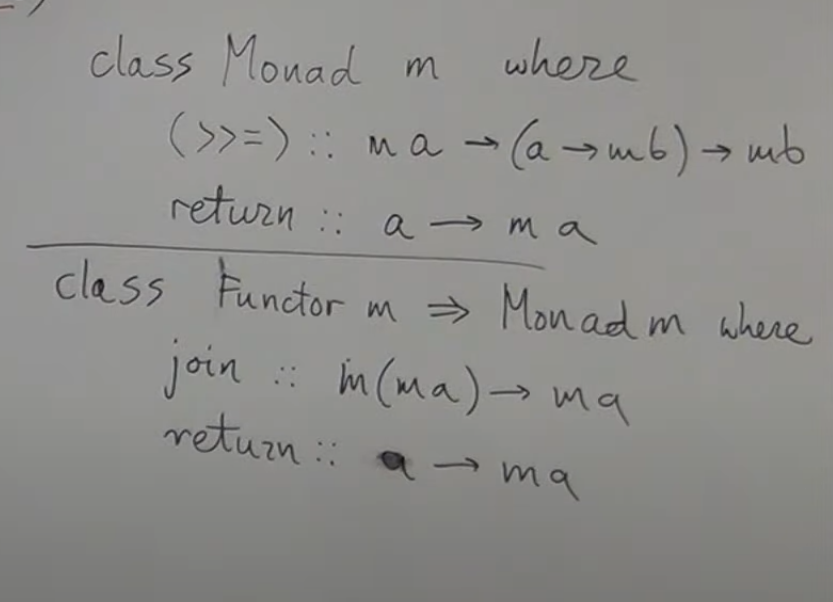 class Monad m where
(>>=) :: m a → (a → m b) → m b
return :: a → m a
class Functor m ⇒ Monad m where
join :: m(m a) → m a
return :: a → m a